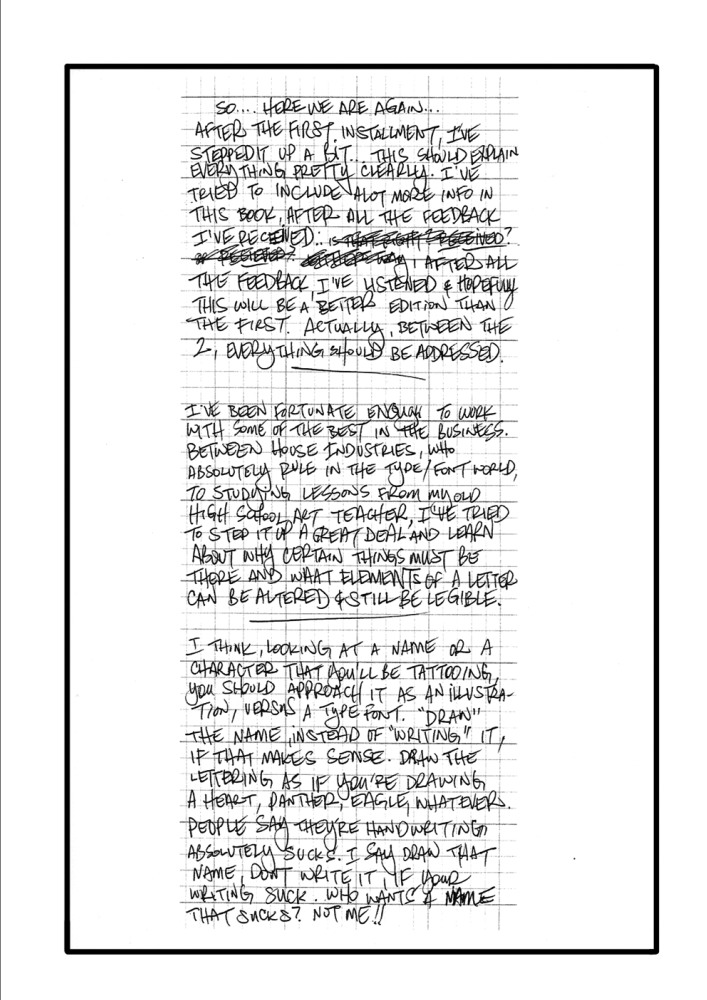 SO.... HERE WE ARE AGAIN...
AFTER THE FIRST INSTALLMENT, I'VE
STEPPED IT UP A BIT... THIS SHOULD EXPLAIN
EVERYTHING PRETTY CLEARLY. I'VE
TRIED TO INCLUDE ALOT MORE INFO IN
THIS BOOK, AFTER ALL THE FEEDBACK
I'VE RECEIVED.. IS THAT RIGHT? RECEIVED?
AFTER ALL
THE FEEDBACK, I'VE LISTENED & HOPEFULLY
THIS WILL BE A BETTER EDITION THAN
THE FIRST. ACTUALLY, BETWEEN THE
2, EVERYTHING SHOULD BE ADDRESSED.
I'VE BEEN FORTUNATE ENOUGH TO WORK
WITH SOME OF THE BEST IN THE BUSINESS.
BETWEEN HOUSE INDUSTRIES, WHO
ABSOLUTELY RULE IN THE TYPE/FONT WORLD,
TO STUDYING LESSONS FROM MY OLD
HIGH SCHOOL ART TEACHER, I'VE TRIED
TO STEP IT UP A GREAT DEAL AND LEARN
ABOUT WHY CERTAIN THINGS MUST BE
THERE AND WHAT ELEMENTS OF A LETTER
CAN BE ALTERED & STILL BE LEGIBLE.
I THINK, LOOKING AT A NAME OR A
CHARACTER THAT YOU'LL BE TATTOOING,
YOU SHOULD APPROACH IT AS AN ILLUSTRA-
TION, VERSUS A TYPE FONT. "DRAW"
THE NAME, INSTEAD OF "WRITING" IT,
IF THAT MAKES SENSE. DRAW THE
LETTERING AS IF YOU'RE DRAWING
A HEART, PANTHER, EAGLE, WHATEVER.
PEOPLE SAY THEYRE HANDWRITING
ABSOLUTELY SUCKS. I SAY DRAW THAT
NAME, DONT WRITE IT, IF YOUR
WRITING SUCK. WHO WANTS A NAME
THAT SUCKS? NOT ME!!